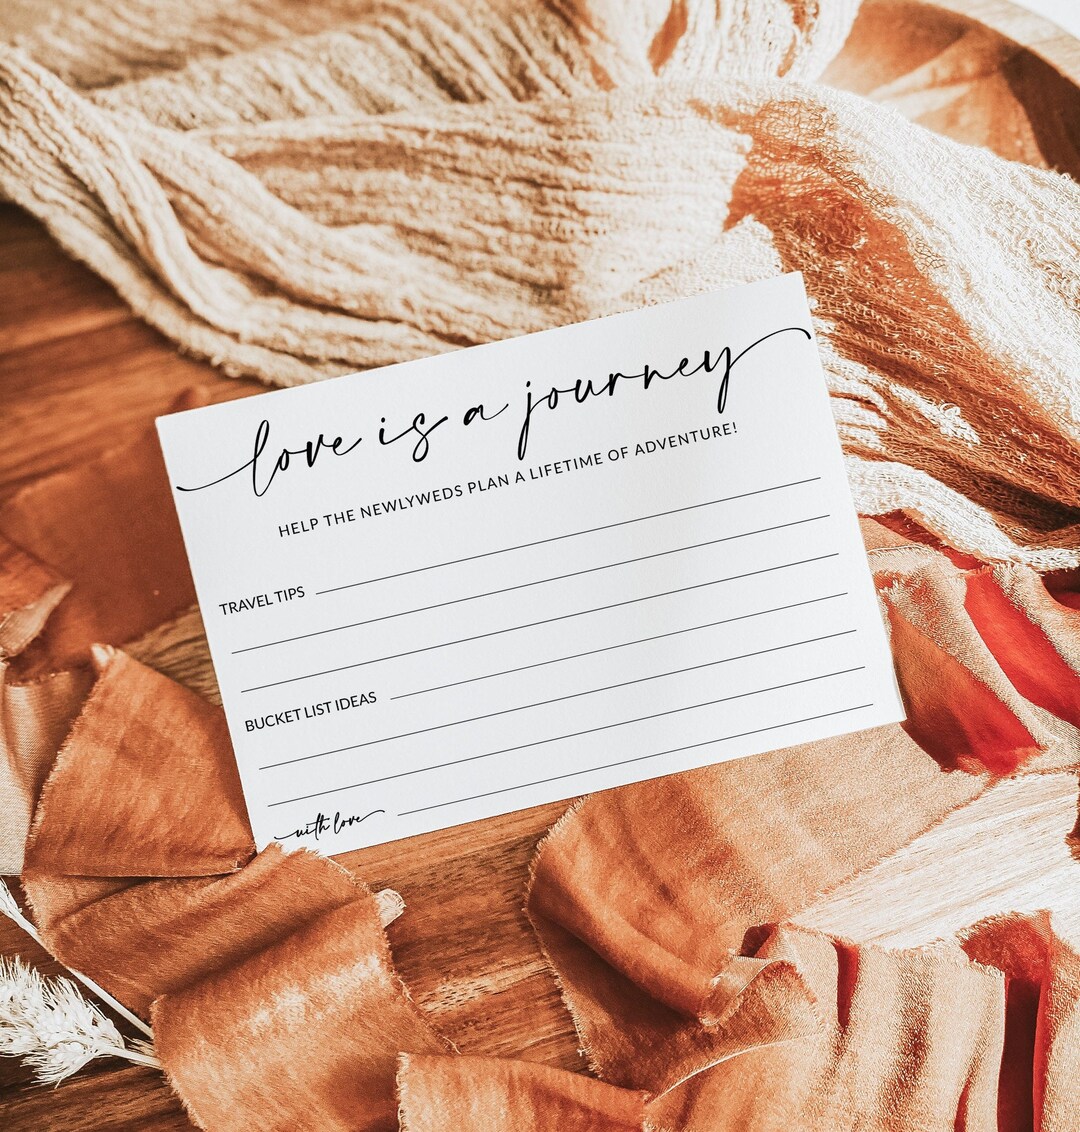 love is a journey
HELP THE NEWLYWEDS PLAN A LIFETIME OF ADVENTURE!
TRAVEL TIPS
BUCKET LIST IDEAS
with love